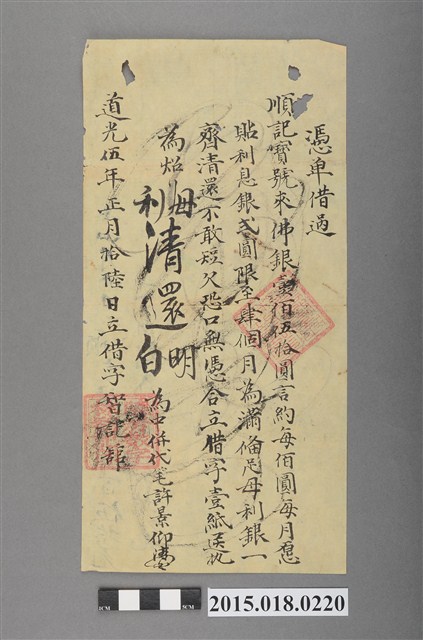 憑单借過
順記寶號來佛銀壹佰伍拾圓言約每佰圓每月愿
貼利息銀弍圓限至肆個月為滿備足母利銀一
齊清還不敢短欠恐口無憑合立借字壹紙送执
為炤
母利清還明白
為中併代笔許景仰
道光伍年正月拾陸日立借字 記舘
1CM
5CM
2015.018.0220